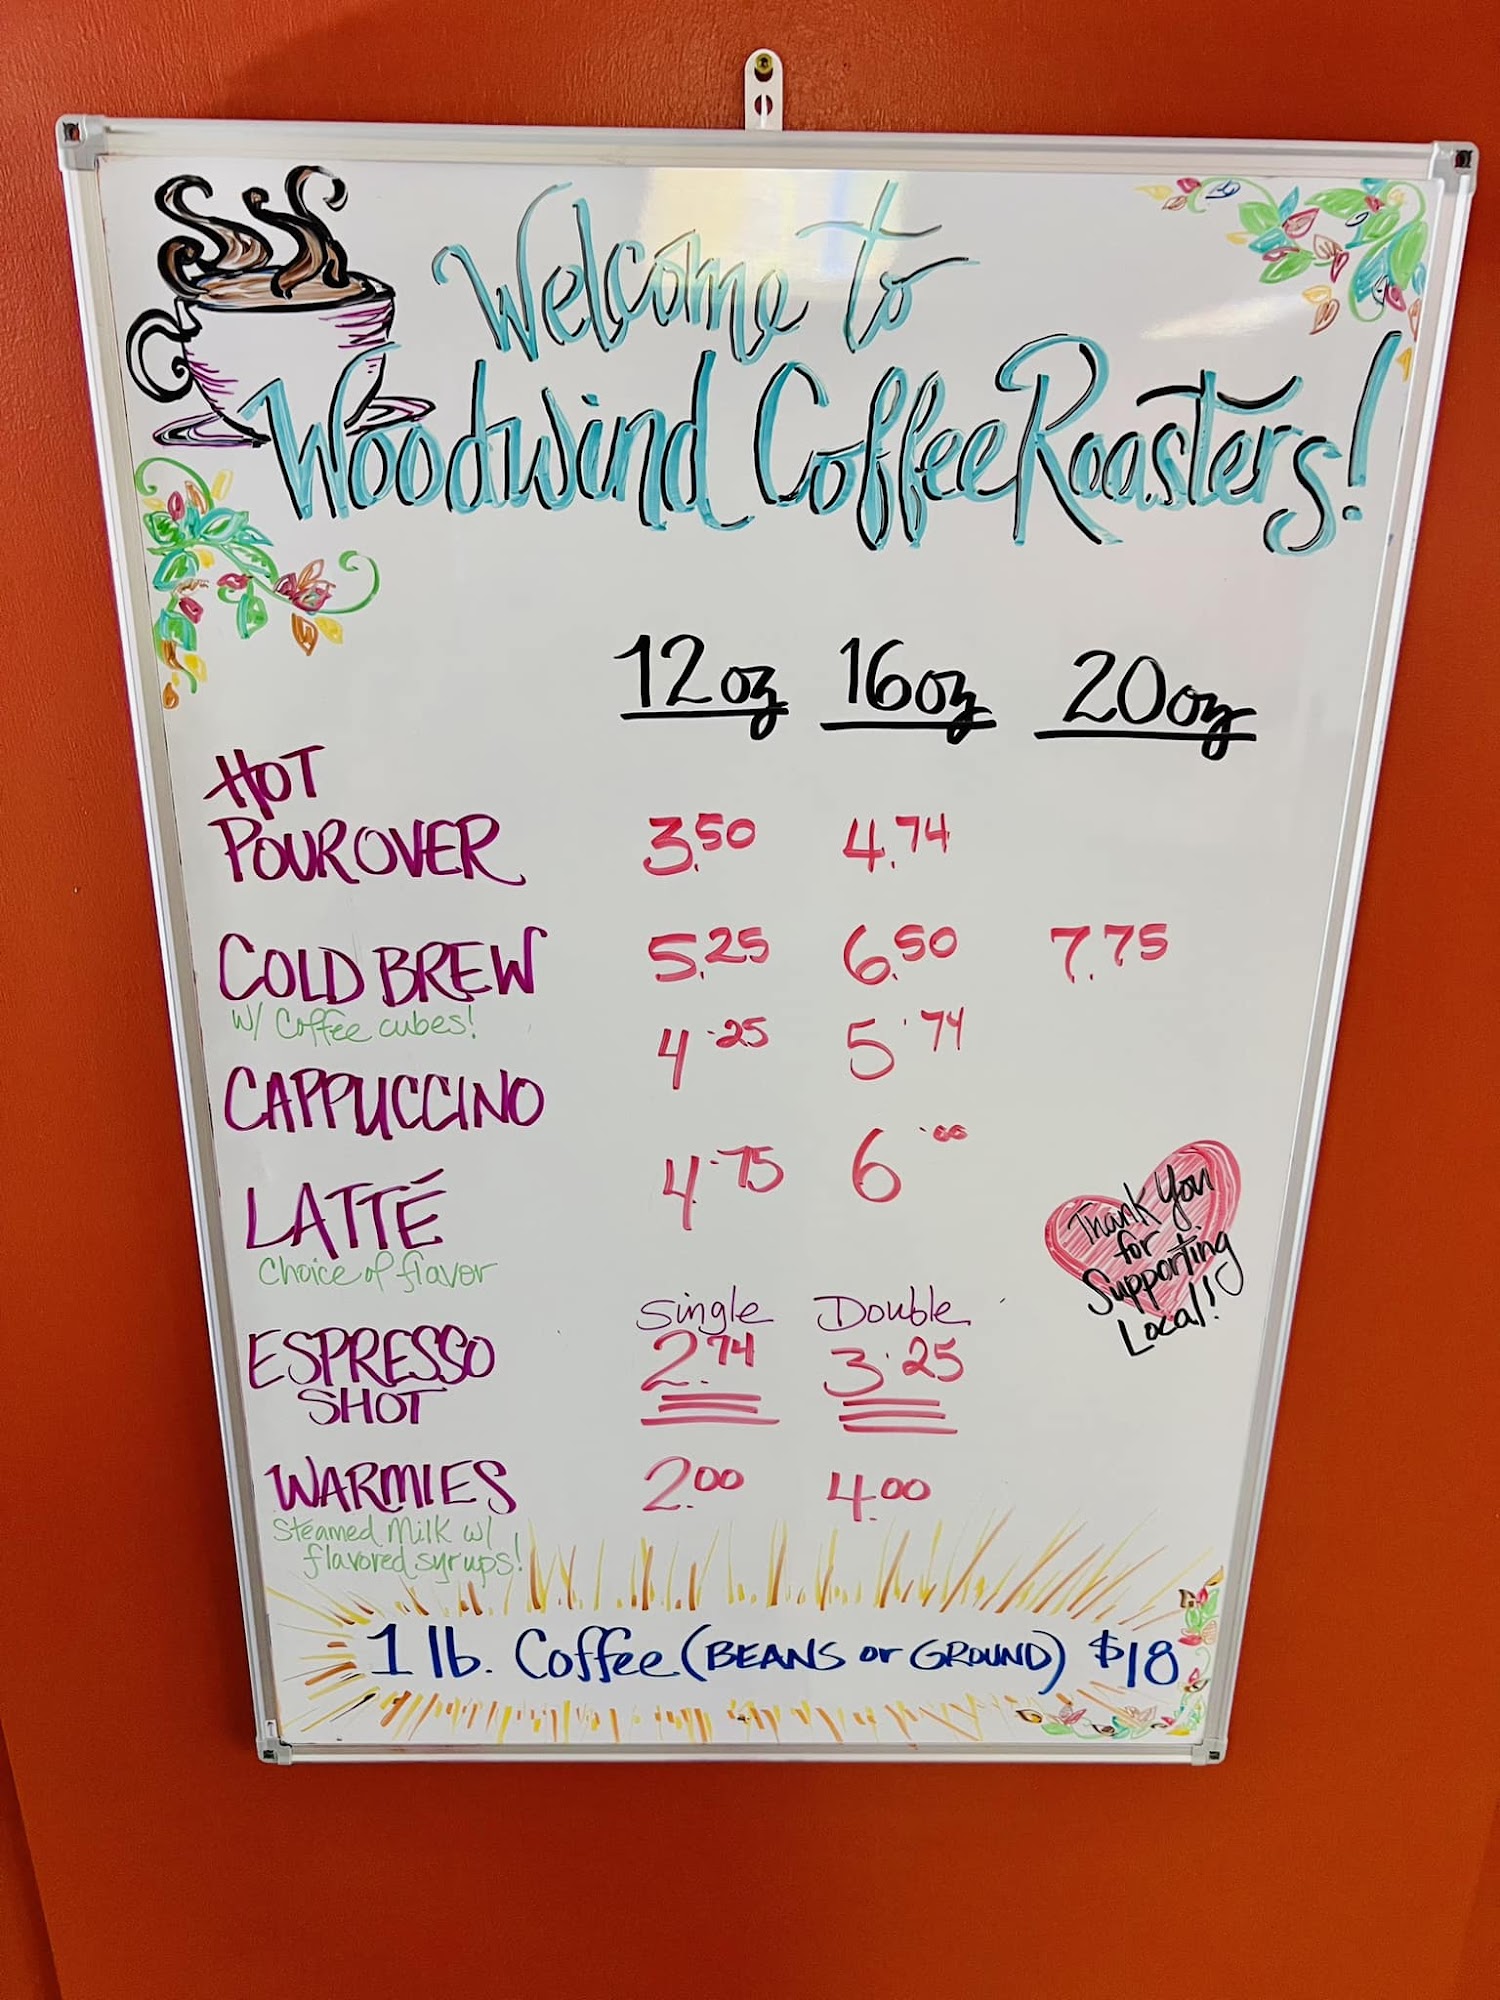 Welcome to
Woodwind Coffee Roasters!
12oz 16oz 20oz
HOT
POUROVER 3.50 4.74
COLD BREW 5.25 6.50 7.75
w/ Coffee cubes!
CAPPUCCINO 4.25 5.74
LATTÉ 4.75 6.00
Choice of flavor
Thank You
for
Supporting
Local!
Single Double
ESPRESSO 2.74 3.25
SHOT
WARMIES 2.00 4.00
Steamed Milk w/
flavored syrups!
1 lb. Coffee (BEANS or GROUND) $18